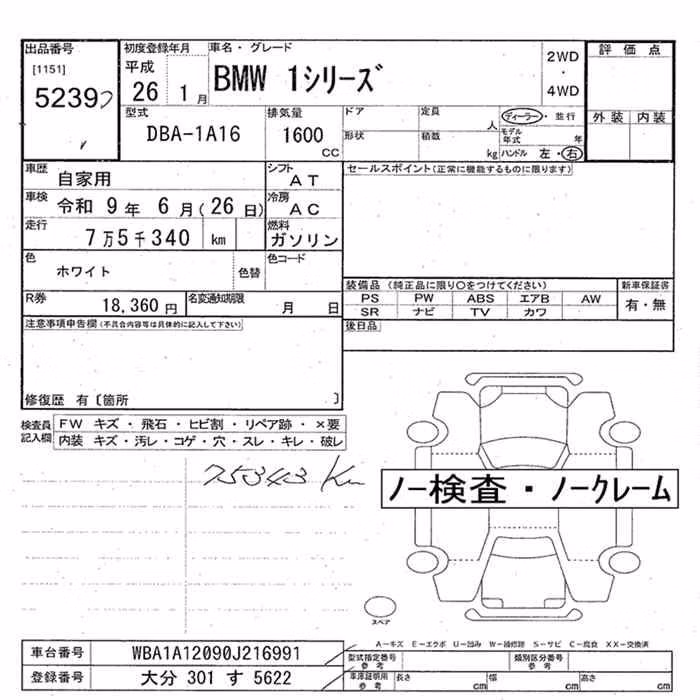 出品番号 初度登録年月 車名・グレード 2WD 評価点
[1151] 平成 BMW 1シリーズ ・
52397 26 1月 4WD
型式 排気量 ドア 定員 ディーラー・並行 外装 内装
DBA-1A16 1600 人 モデル年式 年
CC 形状 積数 kg ハンドル 左・右
車歴 自家用 シフト AT セールスポイント(正常に機能するものに限ります)
車検 令和 9年 6月(26日) 冷房 AC
走行 7万5千340 km 燃料 ガソリン
色 ホワイト 色替 色コード
装備品 (純正品に限り○をつけてください) 新車保証書
R券 18,360円 名変通知期限 月 日 PS PW ABS エアB AW 有・無
SR ナビ TV カワ
注意事項申告欄(不具合内容等は具体的に記入して下さい) 後日品
修復歴 有〔箇所 〕
検査員記入欄 FW キズ・飛石・ヒビ割・リペア跡・×要
内装 キズ・汚レ・コゲ・穴・スレ・キレ・破レ
75343 Km
ノー検査・ノークレーム
スペア
A-キズ E-エクボ U-凹み W-補修跡 S-サビ C-腐食 XX-交換済
車台番号 WBA1A12090J216991 型式指定番号参考 類別区分番号参考
登録番号 大分 301 す 5622 車庫証明用参考 長さ cm 幅 cm 高さ cm